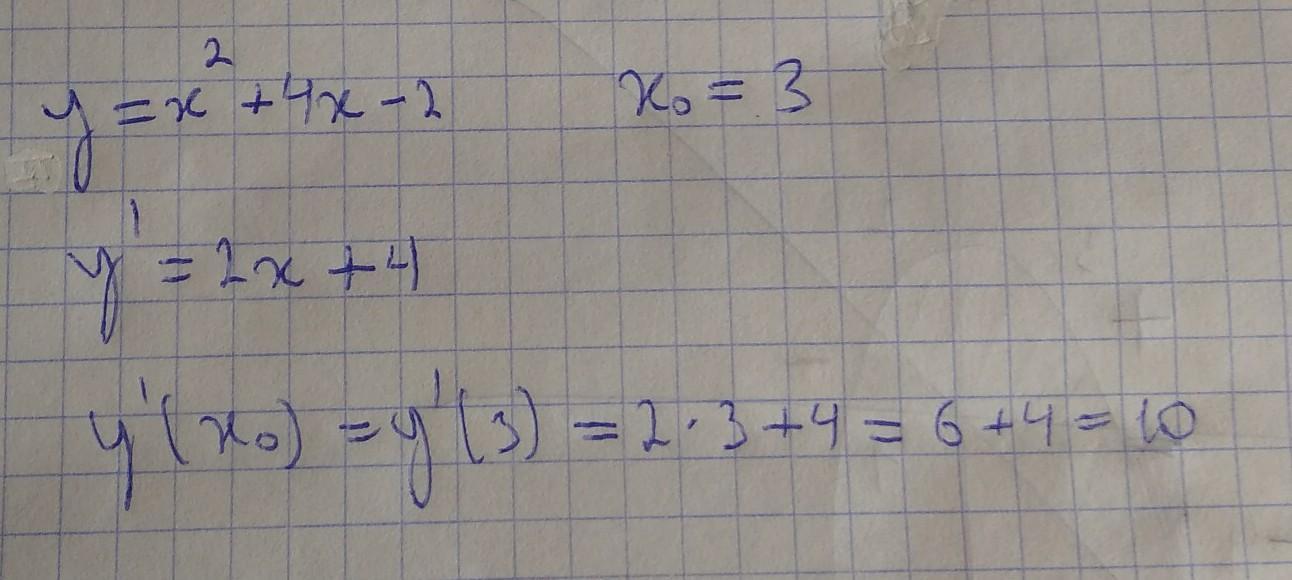 y = x² + 4x - 2 x₀ = 3
y' = 2x + 4
y'(x₀) = y'(3) = 2 · 3 + 4 = 6 + 4 = 10